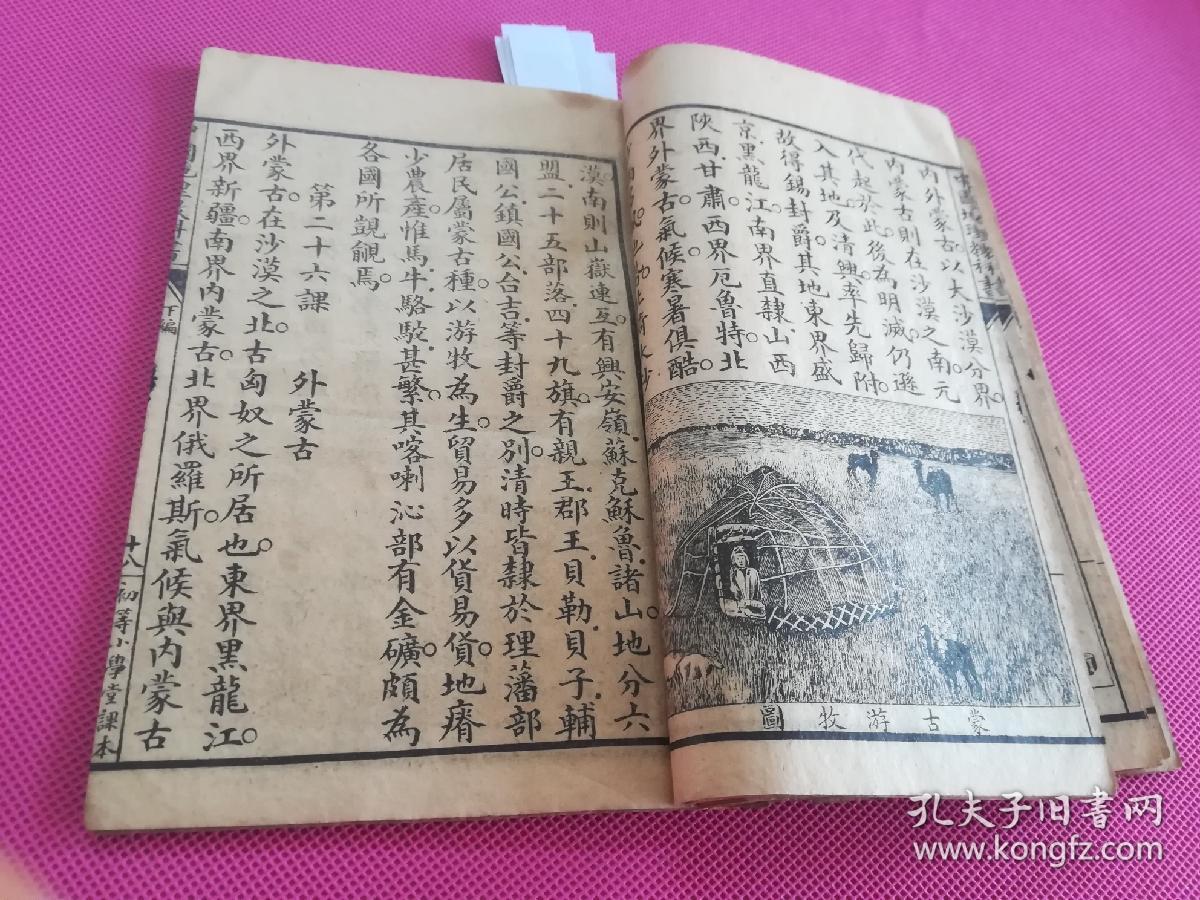 內外蒙古以大沙漠分界。
內蒙古則在沙漠之南。元
代起於此。後為明滅。仍遯
入其地。及清興。率先歸附。
故得錫封爵。其地東界盛
京黑龍江。南界直隸山西
陝西甘肅。西界厄魯特。北
界外蒙古。氣候寒暑俱酷。
蒙古游牧圖
漠南則山嶽連亙。有興安嶺.蘇克蘇魯.諸山。地分六
盟.二十五部落.四十九旗。有親王.郡王.貝勒.貝子.輔
國公.鎮國公.台吉.等封爵之別。清時皆隸於理藩部。
居民屬蒙古種。以游牧為生。貿易多以貨易貨。地瘠
少農產。惟馬牛駱駝甚繁。其喀喇沁部有金礦。頗為
各國所覬覦焉。
第二十六課 外蒙古
外蒙古。在沙漠之北。古匈奴之所居也。東界黑龍江。
西界新疆。南界內蒙古。北界俄羅斯。氣候與內蒙古
下編
十八
初等小學堂課本
孔夫子旧书网
www.kongfz.com